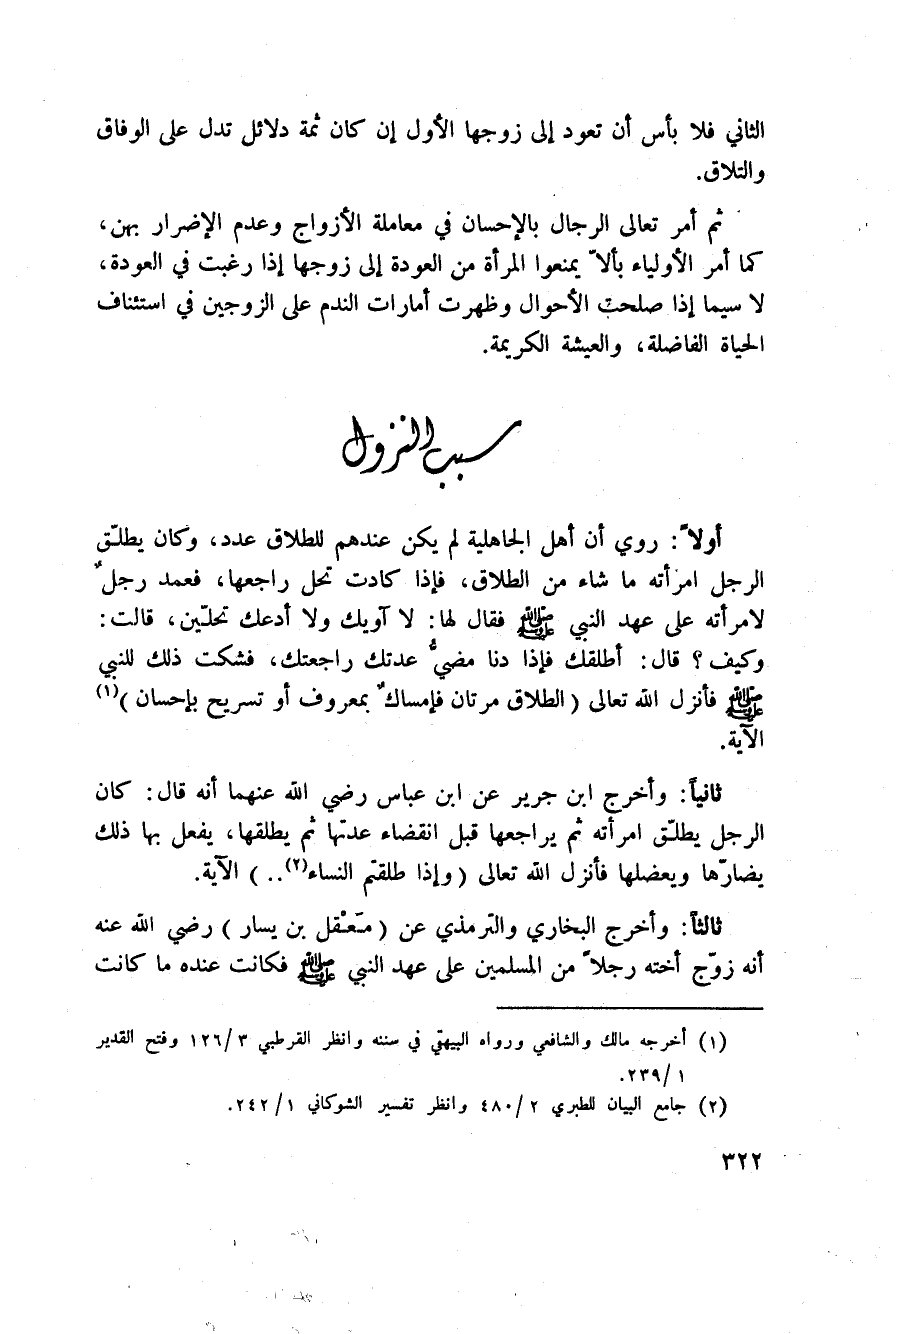 الثاني فلا بأس أن تعود إلى زوجها الأول إن كان ثمة دلائل تدل على الوفاق
والتلاق.
ثم أمر تعالى الرجال بالإحسان في معاملة الأزواج وعدم الإضرار بهن،
كما أمر الأولياء بألاّ يمنعوا المرأة من العودة إلى زوجها إذا رغبت في العودة،
لا سيما إذا صلحت الأحوال وظهرت أمارات الندم على الزوجين في استئناف
الحياة الفاضلة، والعيشة الكريمة.
سبب النزول
أولاً: روي أن أهل الجاهلية لم يكن عندهم للطلاق عدد، وكان يطلّق
الرجل امرأته ما شاء من الطلاق، فإذا كادت تحل راجعها، فعمد رجلٌ
لامرأته على عهد النبي ﷺ فقال لها: لا آويك ولا أدعك تحلّين، قالت:
وكيف؟ قال: أطلقك فإذا دنا مضيُّ عدتك راجعتك، فشكت ذلك للنبي
ﷺ فأنزل الله تعالى (الطلاق مرتان فإمساكٌ بمعروف أو تسريح بإحسان)(١)
الآية.
ثانياً: وأخرج ابن جرير عن ابن عباس رضي الله عنهما أنه قال: كان
الرجل يطلّق امرأته ثم يراجعها قبل انقضاء عدتها ثم يطلقها، يفعل بها ذلك
يضارّها ويعضلها فأنزل الله تعالى (وإذا طلقتم النساء(٢)..) الآية.
ثالثاً: وأخرج البخاري والترمذي عن (مَعْقل بن يسار) رضي الله عنه
أنه زوّج أخته رجلاً من المسلمين على عهد النبي ﷺ فكانت عنده ما كانت
(١) أخرجه مالك والشافعي ورواه البيهقي في سننه وانظر القرطبي ١٢٦/٣ وفتح القدير
٢٣٩/١.
(٢) جامع البيان للطبري ٤٨٠/٢ وانظر تفسير الشوكاني ٢٤٢/١.
٣٢٢